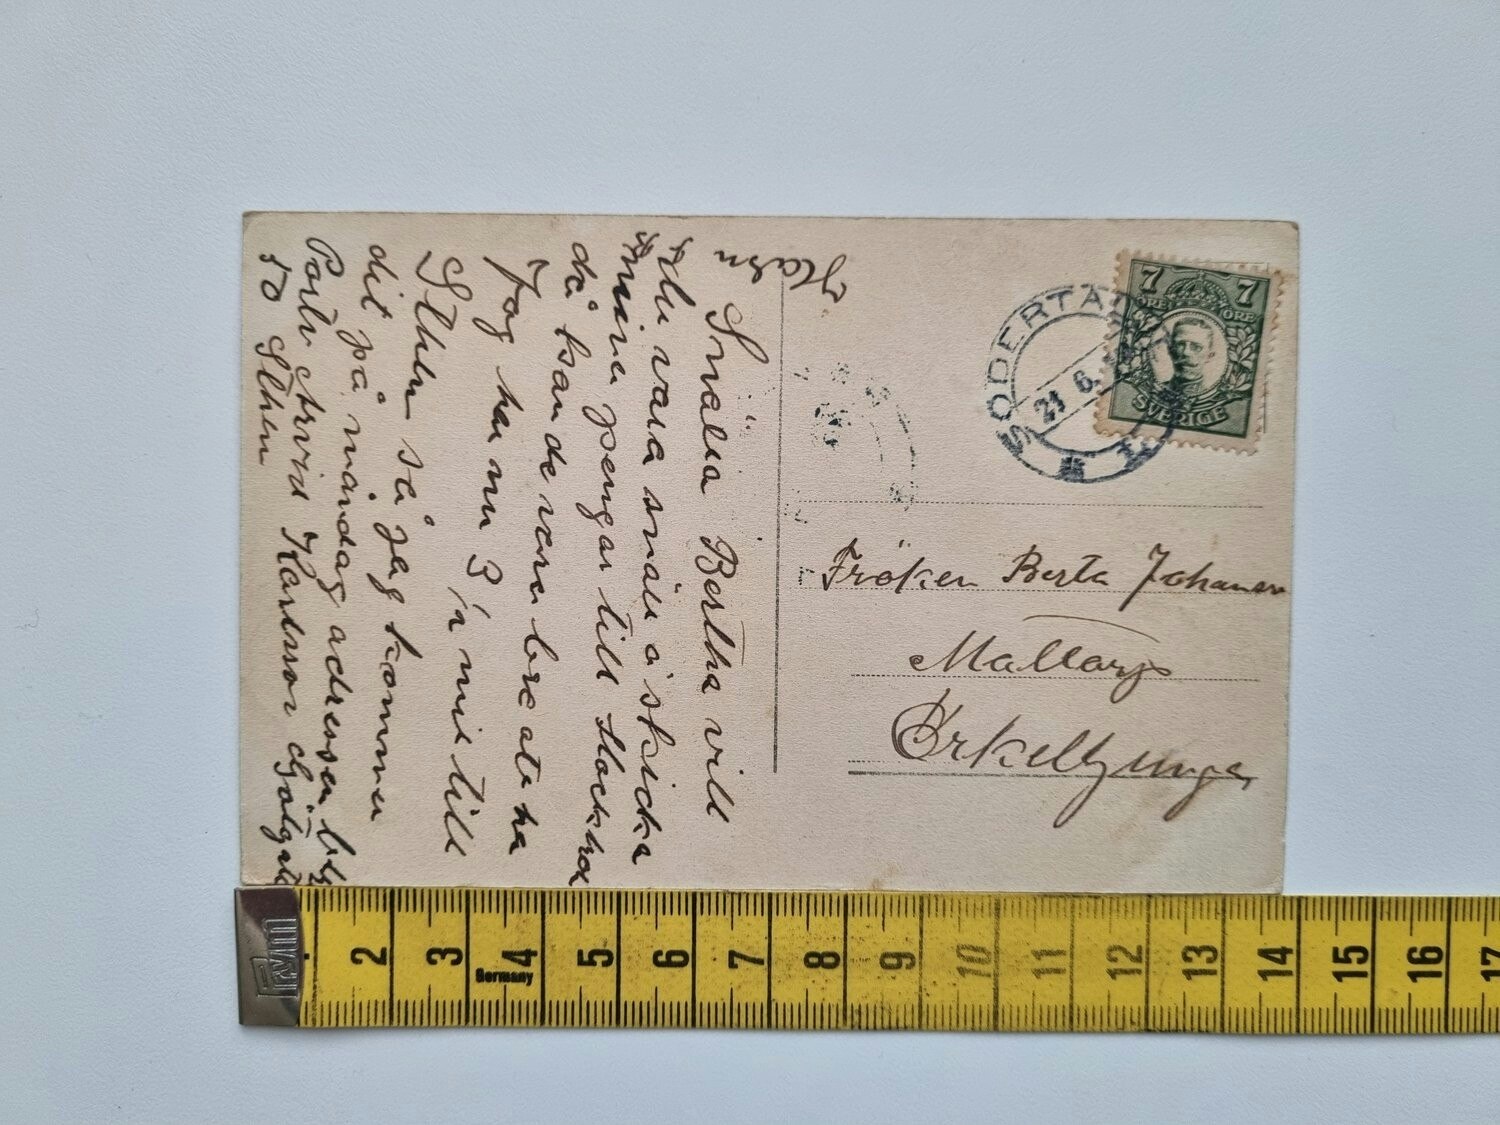 Snälla Bertha vill
du vara snäll o skicka
mina pengar till
då kande vara bra att ha
Jag har nu 3 /
till
Sthlm så jag kommer
dit på måndag adressen
Arvid Karlsson
50 Sthlm
SÖDERTÄLJE
21 6
7 7
ÖRE ÖRE
SVERIGE
Fröken Berta Johansson
Mallarp
Örkelljunga
Prym
2 3 4 5 6 7 8 9 10 11 12 13 14 15 16 17
Germany